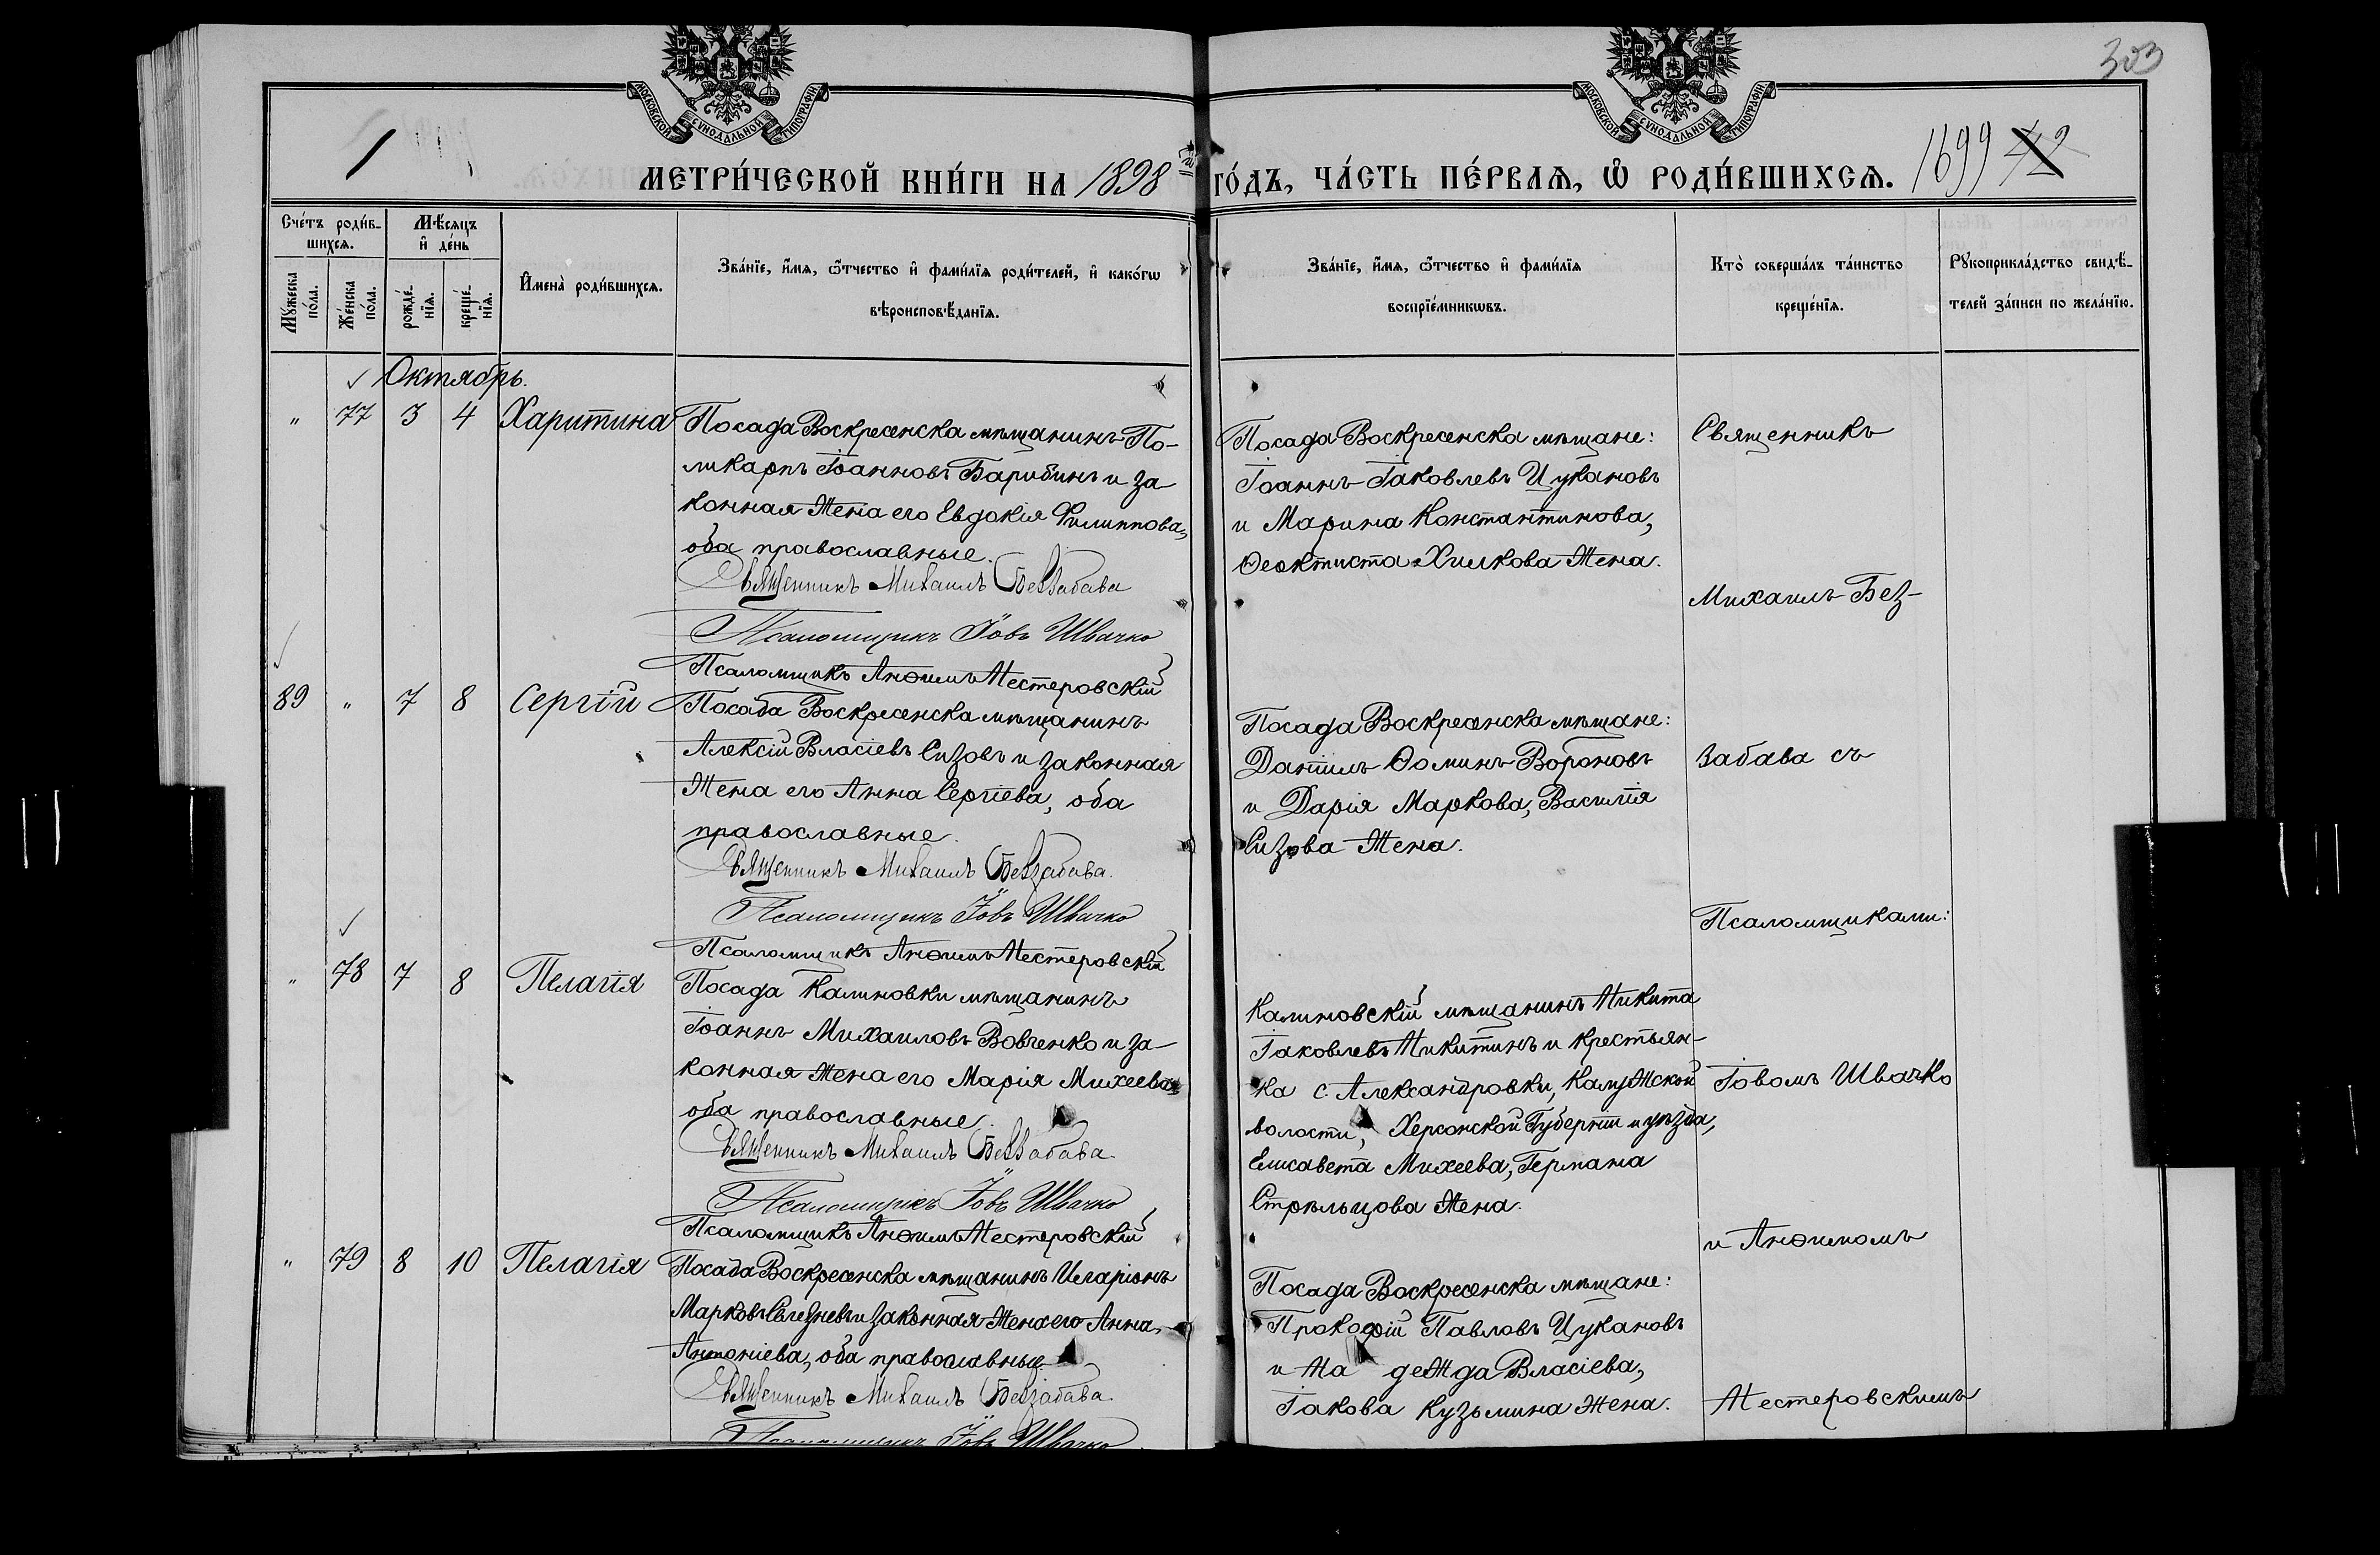 303
МОСКОВСКОЙ СУНОДАЛЬНОЙ ТИПОГРАФІИ
МОСКОВСКОЙ СУНОДАЛЬНОЙ ТИПОГРАФІИ
МЕТРИ́ЧЕСКОЙ КНИ́ГИ НА 1898 й ГО́ДЪ, ЧА́СТЬ ПЕ́РВАѦ, Ѡ РОДИ́ВШИХСѦ. 1699
Сче́тъ роди́в-
шихсѧ.
Мꙋ́жеска по́ла.
Же́нска по́ла.
Мѣ́сѧцъ
и҆ де́нь
рожде́-
нїѧ.
креще́-
нїѧ.
И҆мена̀ роди́вшихсѧ.
Зва́нїе, и҆́мѧ, ѻ҆́тчество и҆ фами́лїѧ роди́телей, и҆ како́гѡ
вѣроисповѣ́данїѧ.
Зва́нїе, и҆́мѧ, ѻ҆́тчество и҆ фами́лїѧ
воспрїе́мникѡвъ.
Кто̀ соверша́лъ та́инство
креще́нїѧ.
Рꙋкоприкла́дство свидѣ́-
телей за́писи по жела́нїю.
Октябрь.
" 77 3 4 Харитина
Посада Воскресенска мѣщанинъ По-
ликарпъ Іоанновъ Барибинъ и за
конная жена его Евдокія Филиппова,
оба православные.
Священникъ Михаилъ Беззабава
Псаломщикъ Іовъ Швачко
Псаломщикъ Анѳимъ Нестеровскій
Посада Воскресенска мѣщане:
Іоаннъ Іаковлевъ Цукановъ
и Марина Константинова,
Ѳеоктиста Хилкова жена.
89 " 7 8 Сергій
Посада Воскресенска мѣщанинъ
Алексій Власіевъ Сизовъ и законная
жена его Анна Сергіева, оба
православные.
Священникъ Михаилъ Беззабава.
Псаломщикъ Іовъ Швачко
Псаломщикъ Анѳимъ Нестеровскій
Посада Воскресенска мѣщане:
Даніилъ Ѳоминъ Вороновъ
и Дарія Маркова, Василія
Сизова жена.
" 78 7 8 Пелагія
Посада Калиновки мѣщанинъ
Іоаннъ Михаиловъ Вовченко и за-
конная жена его Марія Михеева,
оба православные.
Священникъ Михаилъ Беззабава.
Псаломщикъ Іовъ Швачко
Псаломщикъ Анѳимъ Нестеровскій
Калиновскій мѣщанинъ Никита
Іаковлевъ Никитинъ и крестьян-
ка с. Александровки, Калужской
волости, Херсонской Губерніи и уѣзда,
Елисавета Михеева, Германа
Стрѣльцова жена.
" 79 8 10 Пелагія
Посада Воскресенска мѣщанинъ Иларіонъ
Марковъ Селезневъ и законная жена его Анна
Антоніева, оба православные
Священникъ Михаилъ Беззабава.
Псаломщикъ Іовъ Швачко
Посада Воскресенска мѣщане:
Прокофій Павловъ Цукановъ
и На дежда Власіева,
Іакова Кузьмина жена.
Священникъ
Михаилъ Без-
забава съ
Псаломщиками:
Іовомъ Швачко
и Анѳимомъ
Нестеровскимъ